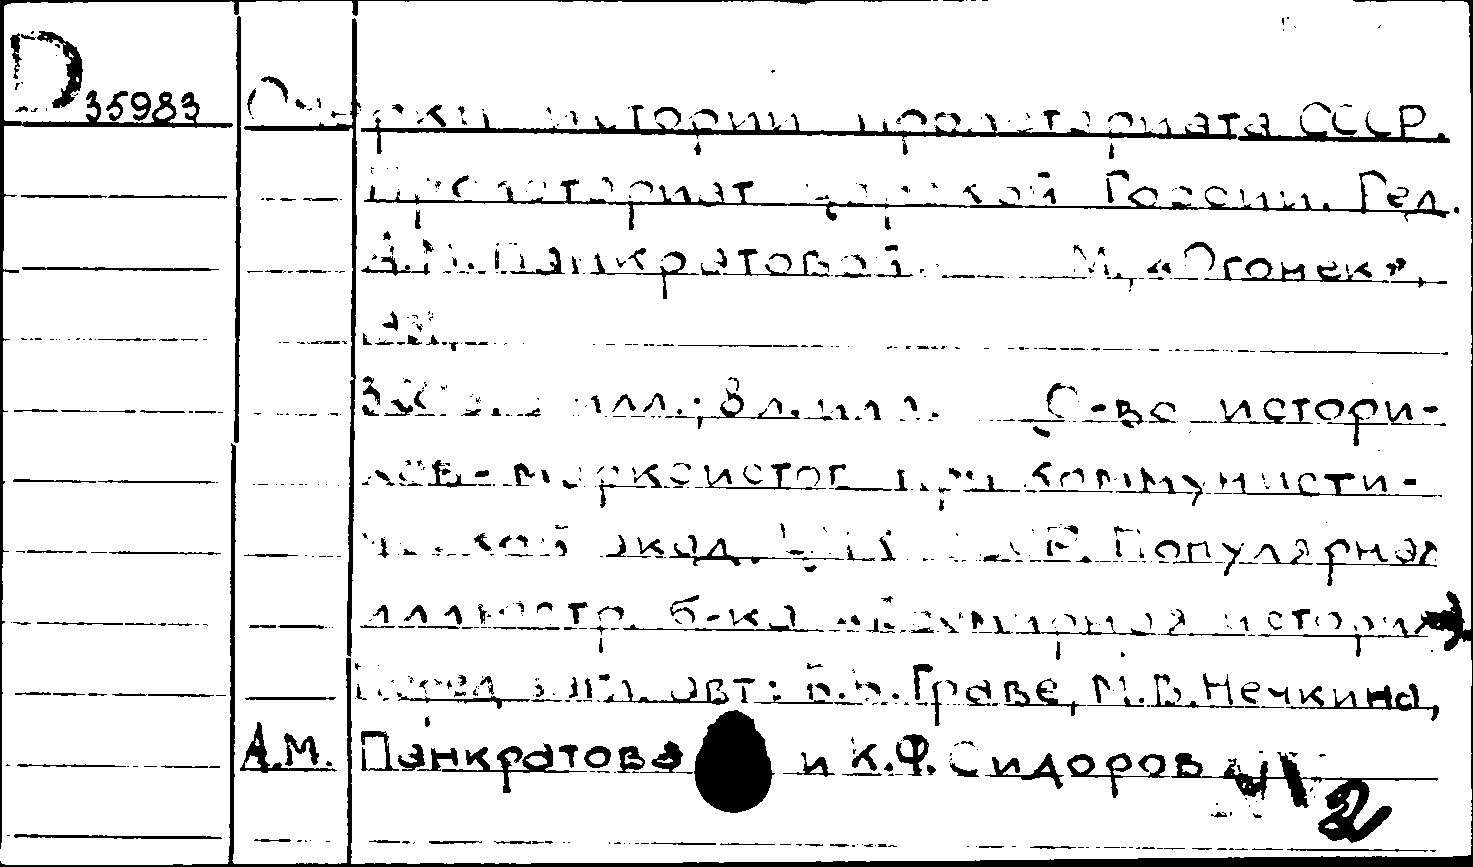 D 35983 Очерки истории пролетариата СССР.
Пролетариат царской России. Ред.
А.М. Панкратовой. М., «Огонек»,
илл.; 8 л. илл. О-во истори-
ков-марксистов при Коммунисти-
ческой акад. ЦИК СССР. Популярная
иллюстр. б-ка «Всемирная история»
Перед загл. авт: Б.Б. Граве, М.В. Нечкина,
А.М. Панкратова и К.Ф. Сидоров
2